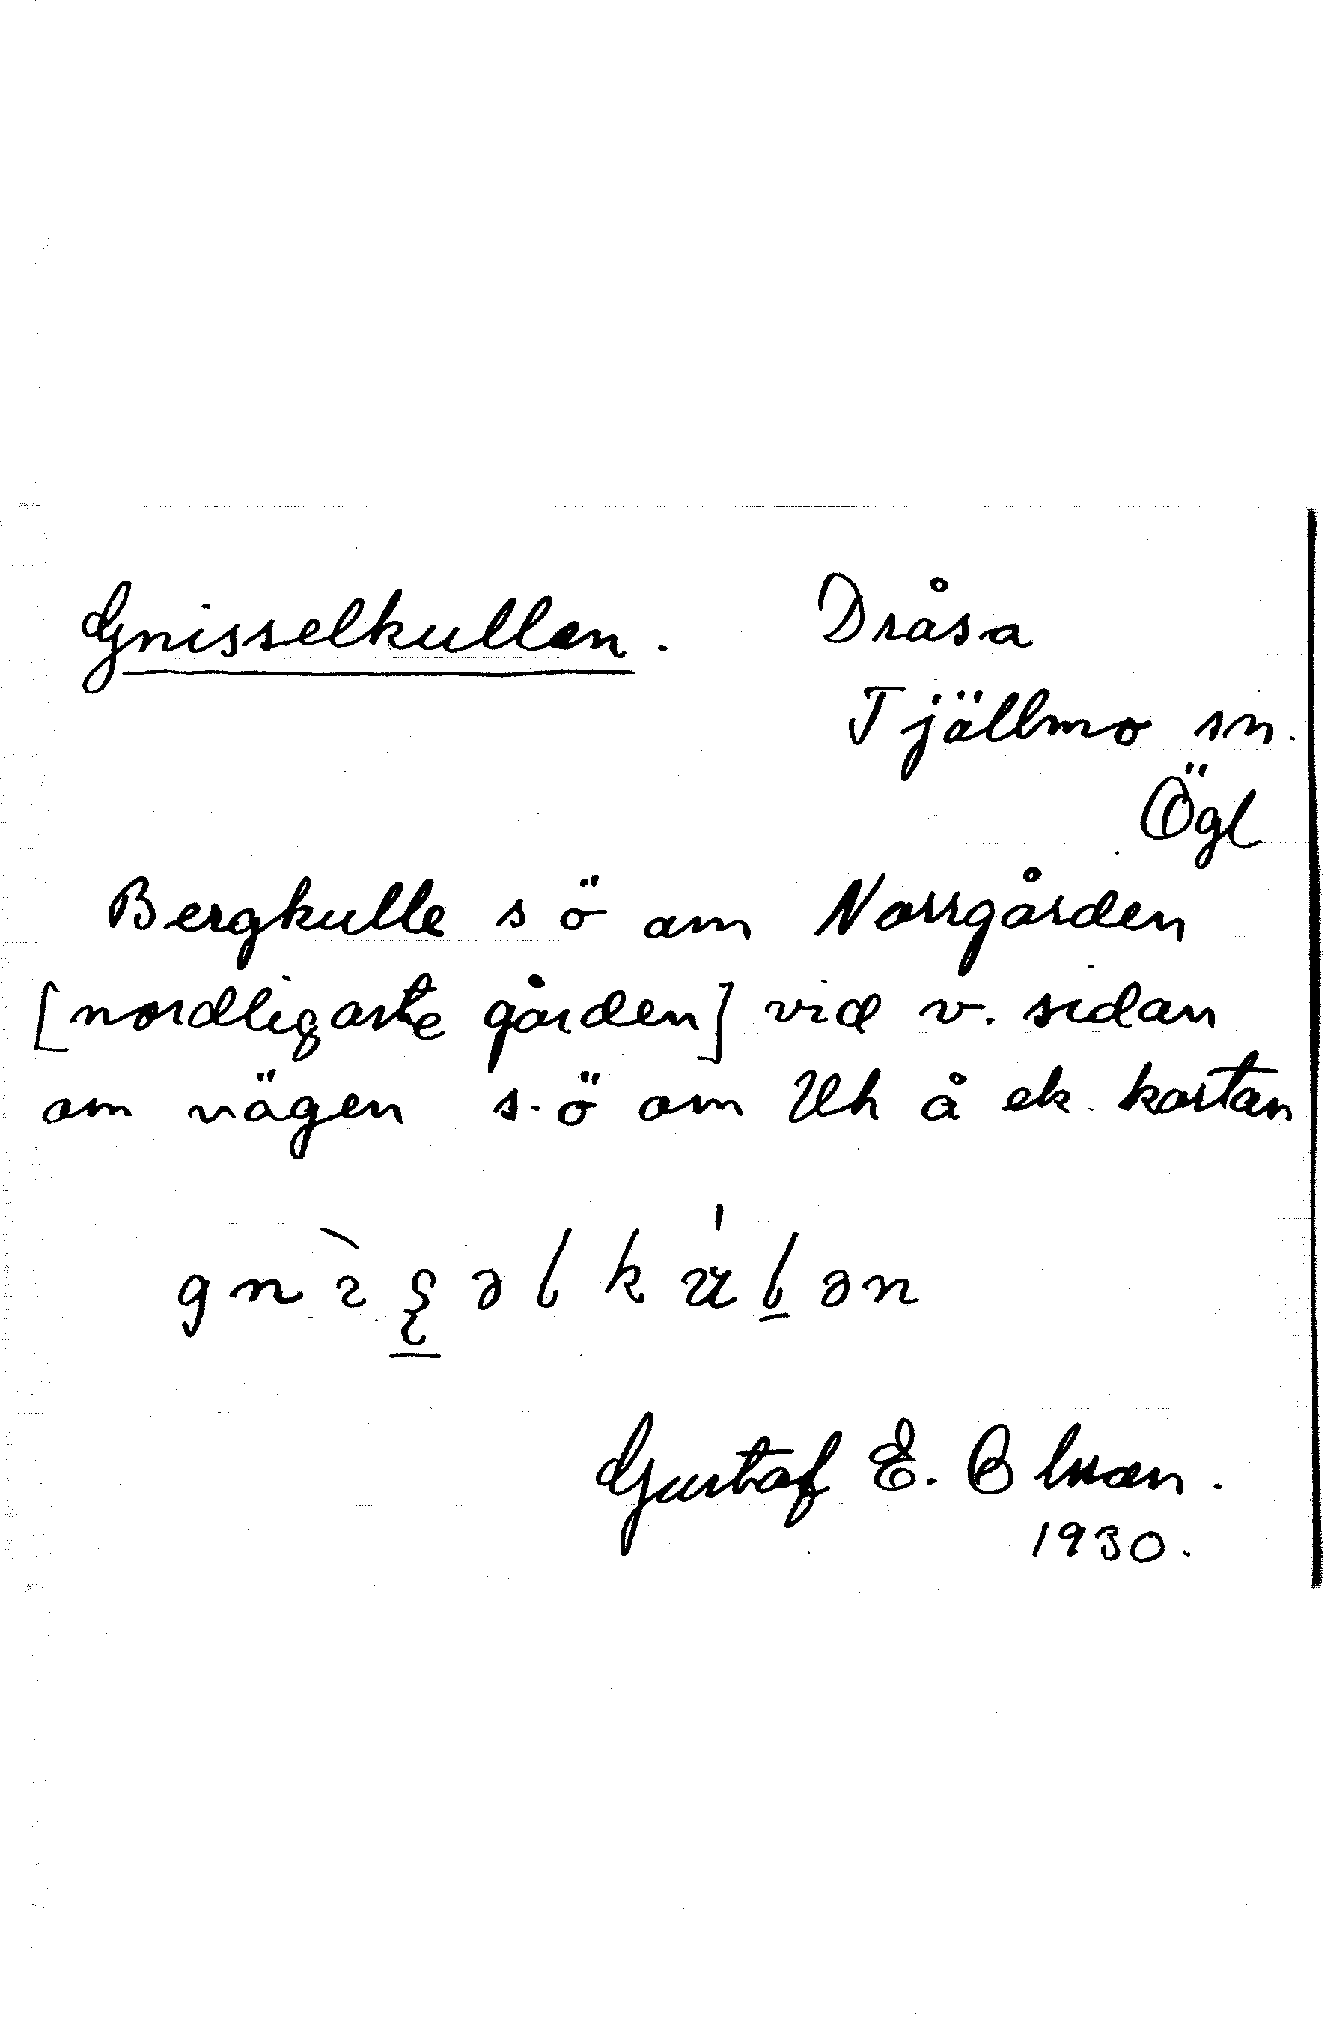 Gnisselkullen. Dråsa
Tjällmo sn.
Ögl
Bergkulle s ö om Norrgården
[nordligaste gården] vid v. sidan
om vägen s.ö om Uh å ek. kartan
Gustaf E. B
1930.